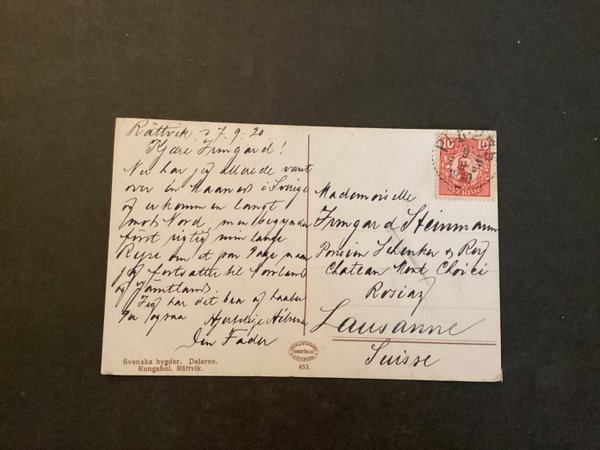 Rättvik d 7.9.20
Kjære Irmgard!
Nu har jeg allerede vært
over en Maaned i Sverige
og er kommen langt
mot Nord, men begynder
først rigtig min lange
Reise om et par Dage naar
jeg fortsætter til Norrland
og Jämtland.
Jeg har det bra og haaber
Du ogsaa
Hjertelige Hilsener
Din Fader
Svenska bygder. Dalarne.
Kungshol. Rättvik.
453.
10 10
SVERIGE
Mademoiselle
Irmgard Steinmann
Pension Schenker
Chateau Mont Choisi
Rosiaz
Lausanne
Suisse